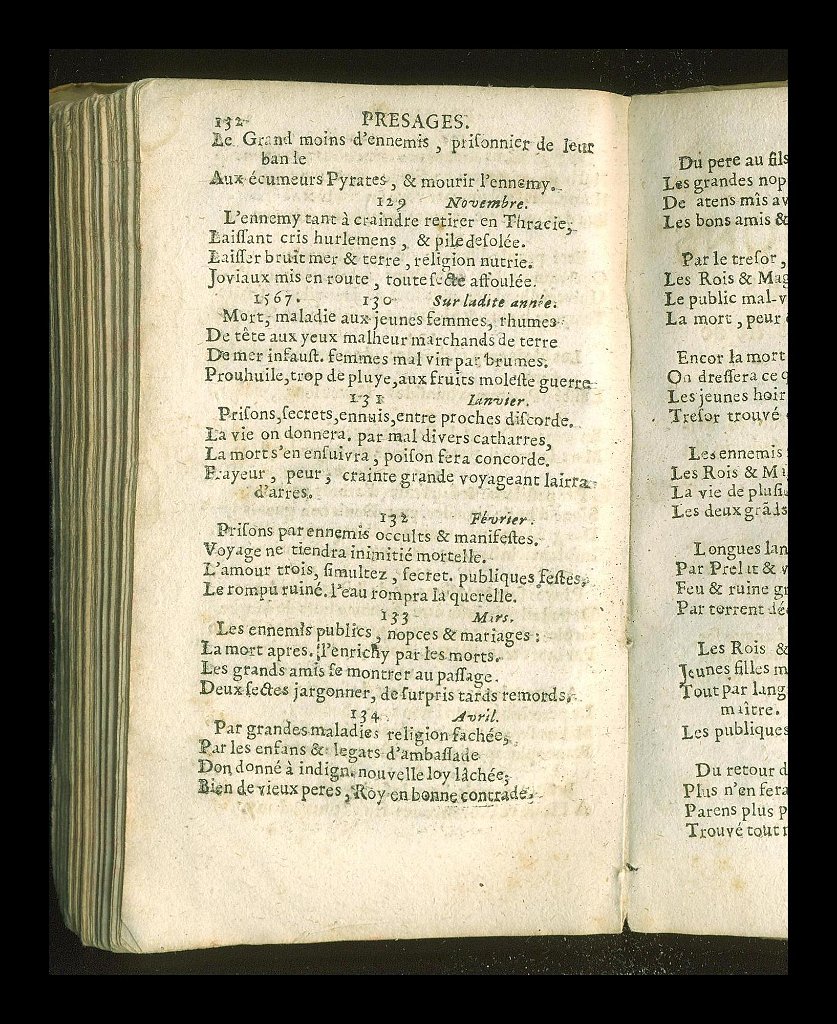 132 PRESAGES.
Le Grand moins d'ennemis , prisonnier de leur
ban le
Aux écumeurs Pyrates , & mourir l'ennemy.
129 Novembre.
L'ennemy tant à craindre retirer en Thracie,
Laiſſant cris hurlemens , & pile deſolée.
Laiſſer bruit mer & terre , religion nutrie.
Joviaux mis en route , toute ſecte aſſoulée.
1567. 130 Sur ladite année.
Mort, maladie aux jeunes femmes, rhumes
De tête aux yeux malheur marchands de terre
De mer infauſt. femmes mal vin par brumes.
Prouhuile, trop de pluye, aux fruits moleſte guerre
131 Ianvier.
Priſons, ſecrets, ennuis, entre proches diſcorde.
La vie on donnera. par mal divers catharres,
La mort s'en enſuivra , poiſon fera concorde.
Frayeur , peur , crainte grande voyageant lairra
d'arres.
132 Février.
Priſons par ennemis occults & manifeſtes.
Voyage ne tiendra inimitié mortelle.
L'amour trois, ſimultez , ſecret. publiques feſtes,
Le rompu ruiné. l'eau rompra la querelle.
133 Mars.
Les ennemis publics , nopces & mariages :
La mort apres. l'enrichy par les morts.
Les grands amis ſe montrer au paſſage.
Deux ſectes jargonner, de ſurpris tards remords.
134 Avril.
Par grandes maladies religion fachée,
Par les enfans & legats d'ambaſſade
Don donné à indign. nouvelle loy lâchée,
Bien de vieux peres , Roy en bonne contrade.
Du pere au fils
Les grandes nop
De atens mis av
Les bons amis &
Par le treſor ,
Les Rois & Mag
Le public mal-v
La mort , peur
Encor la mort
On dreſſera ce q
Les jeunes hoir
Treſor trouvé
Les ennemis
Les Rois & M
La vie de pluſi
Les deux grãds
Longues lan
Par Prelat & v
Feu & ruine gr
Par torrent dé
Les Rois &
Jeunes filles m
Tout par lang
maître.
Les publiques
Du retour d
Plus n'en fera
Parens plus p
Trouvé tout